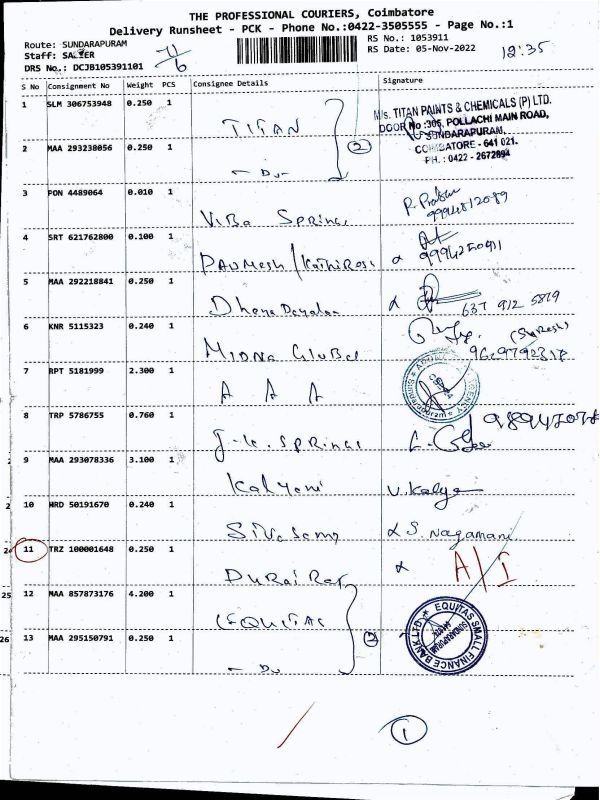 THE PROFESSIONAL COURIERS, Coimbatore
Delivery Runsheet - PCK - Phone No.:0422-3505555 - Page No.:1
Route: SUNDARAPURAM
RS No.: 1053911
Staff:
RS Date: 05-Nov-2022
12:35
DRS No.: DCJB105391101
S No Consignment No Weight PCS Consignee Details Signature
1 SLM 306753948 0.250 1 TITAN
M/s. TITAN PAINTS & CHEMICALS (P) LTD.
DOOR No :306, POLLACHI MAIN ROAD,
SUNDARAPURAM,
COIMBATORE - 641 021.
PH. : 0422 - 2672894
2 MAA 293238056 0.250 1 - Do - 2
3 PON 4489064 0.010 1 ViBa SPrings
4 SRT 621762800 0.100 1
5 MAA 292218841 0.250 1 Dhena Dayalan 637 912 5879
6 KNR 5115323 0.240 1 (Suresh)
7 RPT 5181999 2.300 1 A A A
8 TRP 5786755 0.760 1 J.K. SPrings
9 MAA 293078336 3.100 1 Kalyani V. Kalya
10 HRD 50191670 0.240 1 Sivasamy S. Nagamani
11 TRZ 100001648 0.250 1 DURai Raj A/I
12 MAA 857873176 4.200 1 EQUITAS
EQUITAS SMALL FINANCE BANK LTD
13 MAA 295150791 0.250 1 - Do 2
1